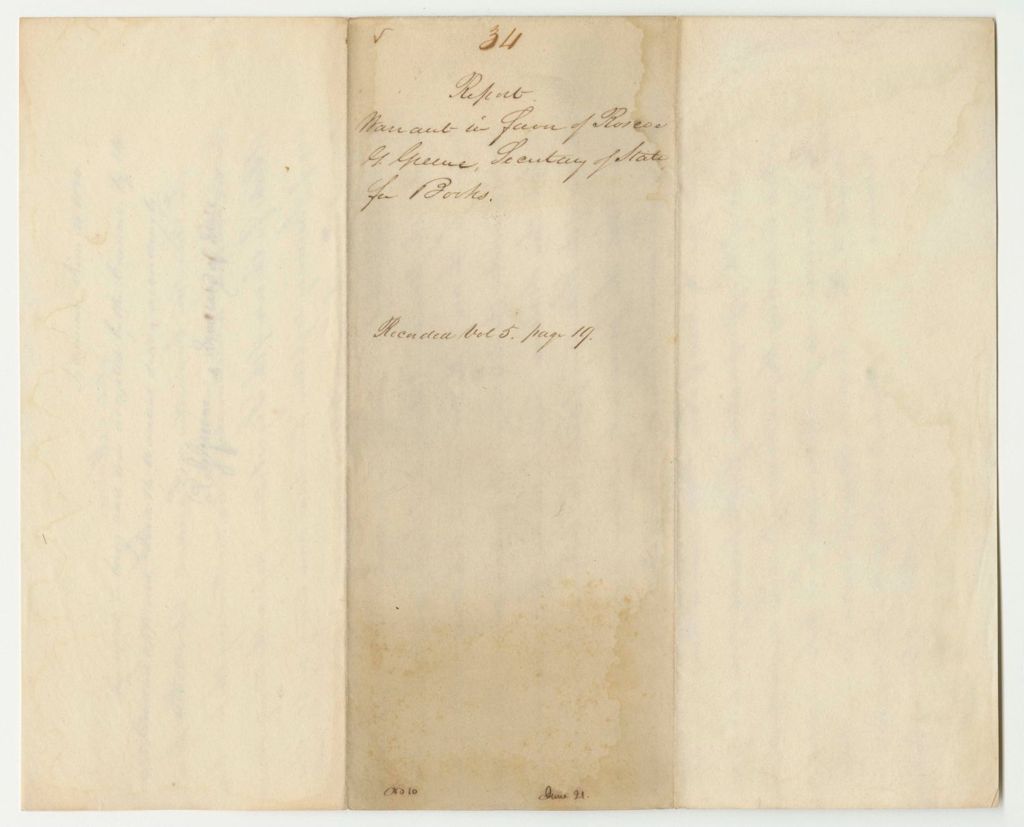 34
Report
Warrant in favor of Roscoe
G. Greene, Secretary of State
for Books.
Recorded Vol 5. page 19.
No 10
June 21.